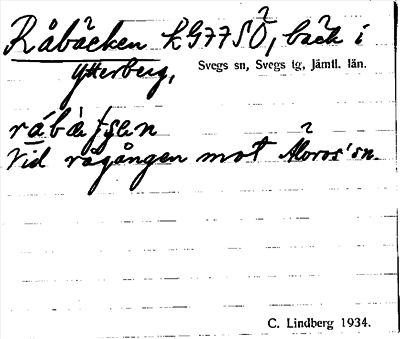 Råbäcken LG775Ö, bäck i
Ytterberg, Svegs sn, Svegs tg, Jämtl. län.
Vid rågången mot Älvros sn.
C. Lindberg 1934.